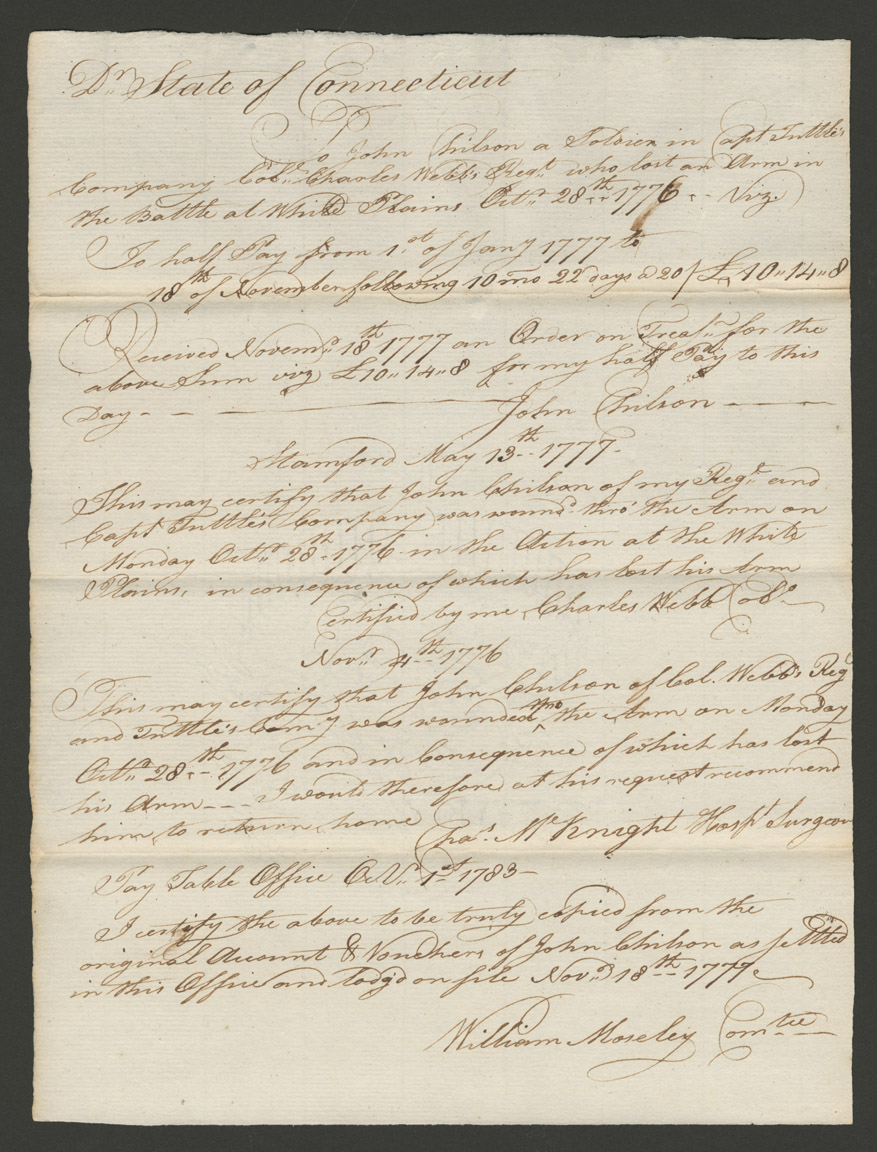 Dr. State of Connecticut
To John Chilson a Soldier in Capt Tuttle's
Company Col. Charles Webb's Regt who lost an Arm in
the Battle at White Plains Octr 28th 1776 - Viz
To half Pay from 1st of Jany 1777 to
18th of November following 10 mo 22 days @ 20/ £ 10..14..8
Received Novemr 18th 1777 an Order on Treasr for the
above Sum viz £10..14..8 for my half Pay to this
Day - - - John Chilson - - -
Stamford May 13th 1777 -
This may certify that John Chilson of my Regt and
Capt Tuttle's Company was wound'd thro' the Arm on
Monday Octr 28th 1776 in the Action at the White
Plains, in consequence of which has lost his Arm
Certified by me Charles Webb Colo
Novr 4th 1776
This may certify that John Chilson of Col. Webb's Regt
and Tuttle's Comy was wounded thro the Arm on Monday
Octr 28th 1776 and in Consequence of which has lost
his Arm --- I would therefore at his request recommend
him to return home Chas. McKnight Hospl Surgeon
Pay Table Office 1st 1783 -
I certify the above to be truly copied from the
original Account & Vouchers of John Chilson as settled
in this Office and lodg'd on file Novr 18th 1777.
William Moseley Comtee